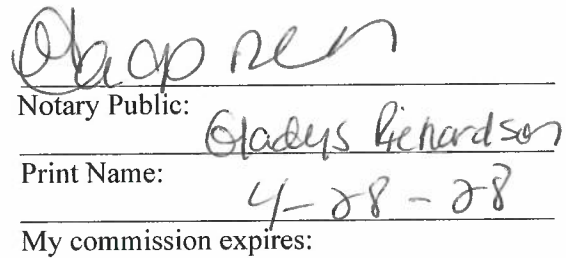 Notary Public:
Gladys Richardson
Print Name:
4-28-28
My commission expires: